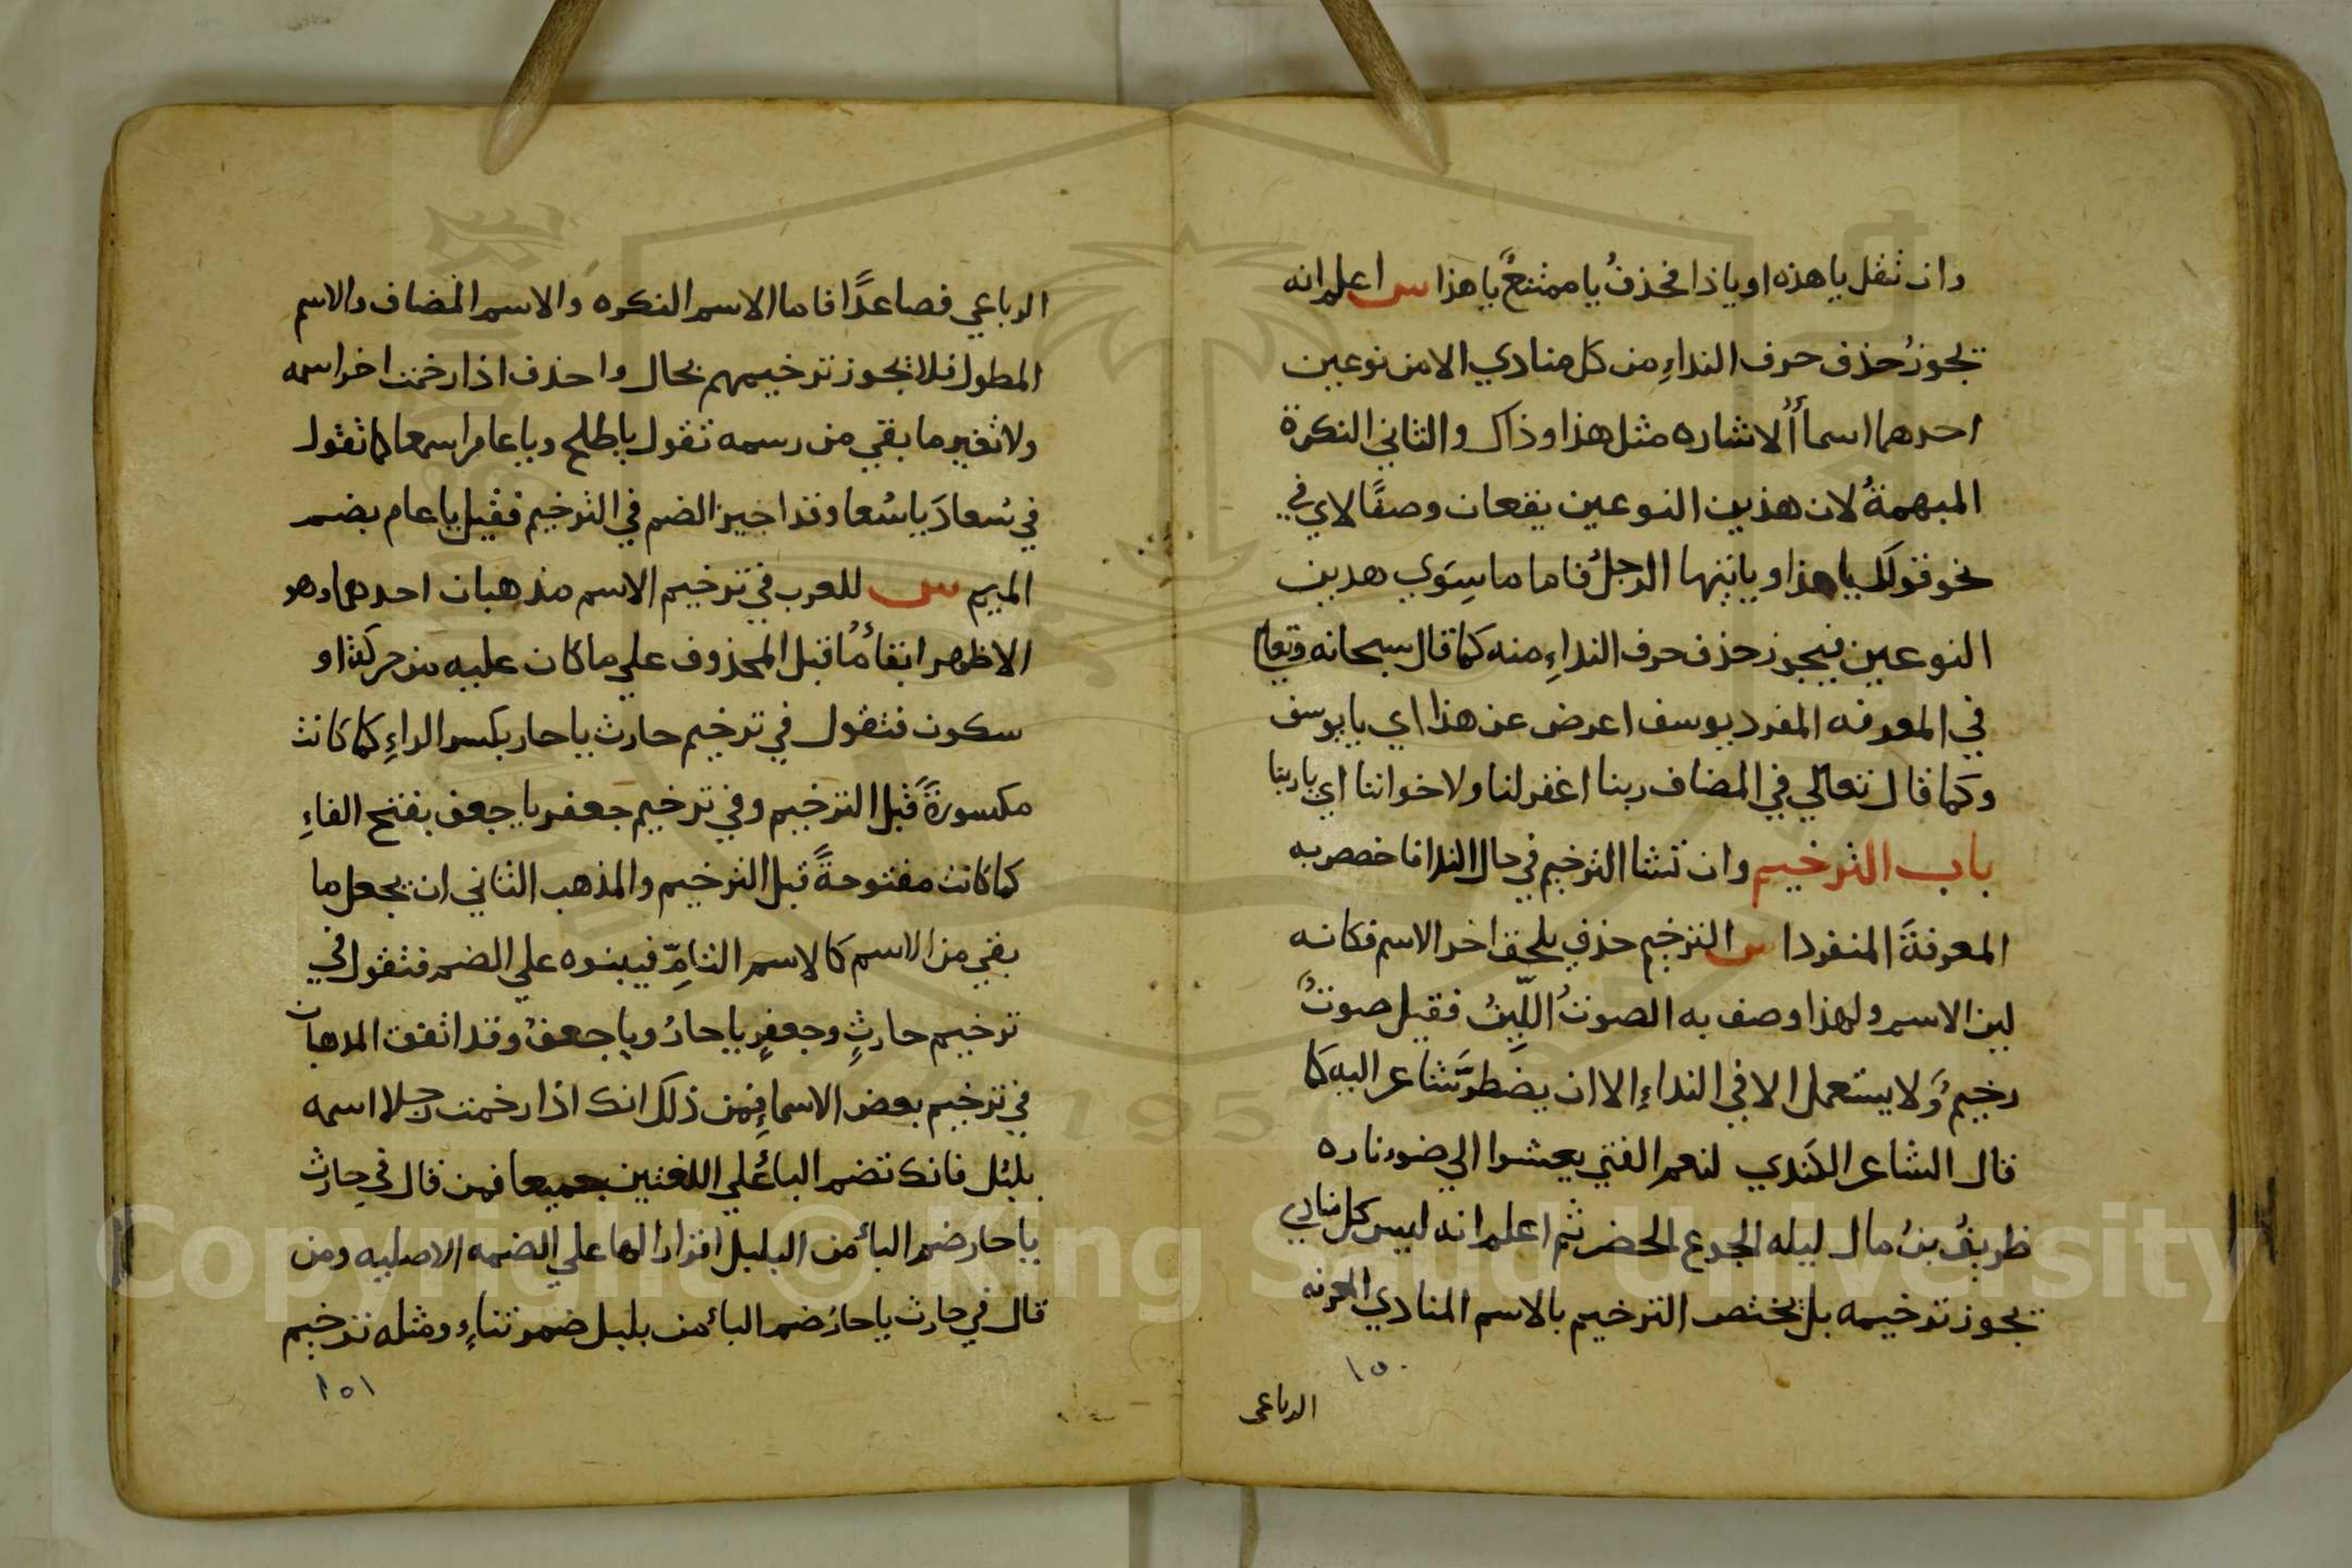 وان تقل يا هذه او يا ذا فحذفُ يا ممتنعٌ يا هذا س اعلم انه
يجوزُ حذف حرف النداءِ من كل منادي الا من نوعين
احدهما اسماأُ الاشاره مثل هذا وذاك والثاني النكرة
المبهمةُ لان هذين النوعين يقعان وصفًا لاي في
نحو قولَك يا هذا ويا ايها الرجلُ فاما ما سِوَي هدين
النوعين فيجوز حذف حرف النداءِ منه كما قال سبحانه وتعالي
في المعرفه المفرد يوسف اعرض عن هذا اي يا يوسف
وكما قال تعالي في المضاف ربنا اغفر لنا ولاخواننا اي يا ربنا
باب الترخيم وان تشا الترخيم في حال الندا فاخصص به
المعرفةَ المنفردا س الترخيم حذف يلحق اخر الاسم فكانه
لين الاسم ولهذا وصف به الصوتُ اللّيِنُ فقيل صوتٌ
رخيمٌ وَلا يستعمل الا في النداءِ الا ان يضطرَّ شاعر اليه كما
قال الشاعر الكندي لنعم الفتي يعشوا الي ضوء ناره
ظريفُ بنُ مال ليله الجوع الحضر ثم اعلم انه ليس كل منادي
يجوز ترخيمه بل يختص الترخيم بالاسم المنادي المعرفه
١٥٠
الرباعي
الرباعي فصاعدًا فاما الاسم النكره والاسم المضاف والاسم
المطول فلا يجوز ترخيمهم بحال واحذف اذا رخمت اخر اسمه
ولا تغير ما بقي من رسمه تقول يا طلح ويا عام اسمعا كما تقول
في سُعادَ يا سُعا وقد اجيز الضم في الترخيم فقيل يا عام بضم
الميم س للعرب في ترخيم الاسم مذهبان احدهما وهو
الاظهر ابقاءُ ما قبل المحذوف علي ما كان عليه من حركة او
سكون فتقول في ترخيم حارث يا حار بكسر الراءِ كما كانت
مكسورةً قبل الترخيم وفي ترخيم جعفر يا جعف بفتح الفاءِ
كما كانت مفتوحةً قبل الترخيم والمذهب الثاني ان يجعل ما
بقي من الاسم كالاسم التامِّ فيبنوه علي الضم فتقول في
ترخيم حارثٍ وجعفرٍ يا حارُ ويا جعفُ وقد اتفق المدهبان
في ترخيم بعض الاسماءِ فمن ذلك انك اذا رخمت رجلا اسمه
بلبُل فانك تضم الباءُ علي اللغتين جميعا فمن قال في حارث
يا حار ضم الباءُ من البلبل اقرارا لها علي الضمه الاصليه ومن
قال في حارث يا حارُ ضم الباءُ من بلبل ضمر بناءٍ ومثله ترخيم
١٥١
Copyright © King Saud University
1957